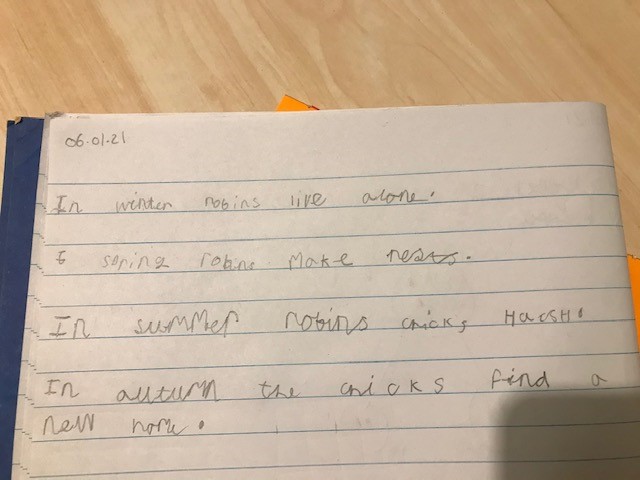 06.01.21
In winter robins live alone.
I spring robins make nests.
In summer robins chicks Hacsh.
In autumn the chicks find a
new home.